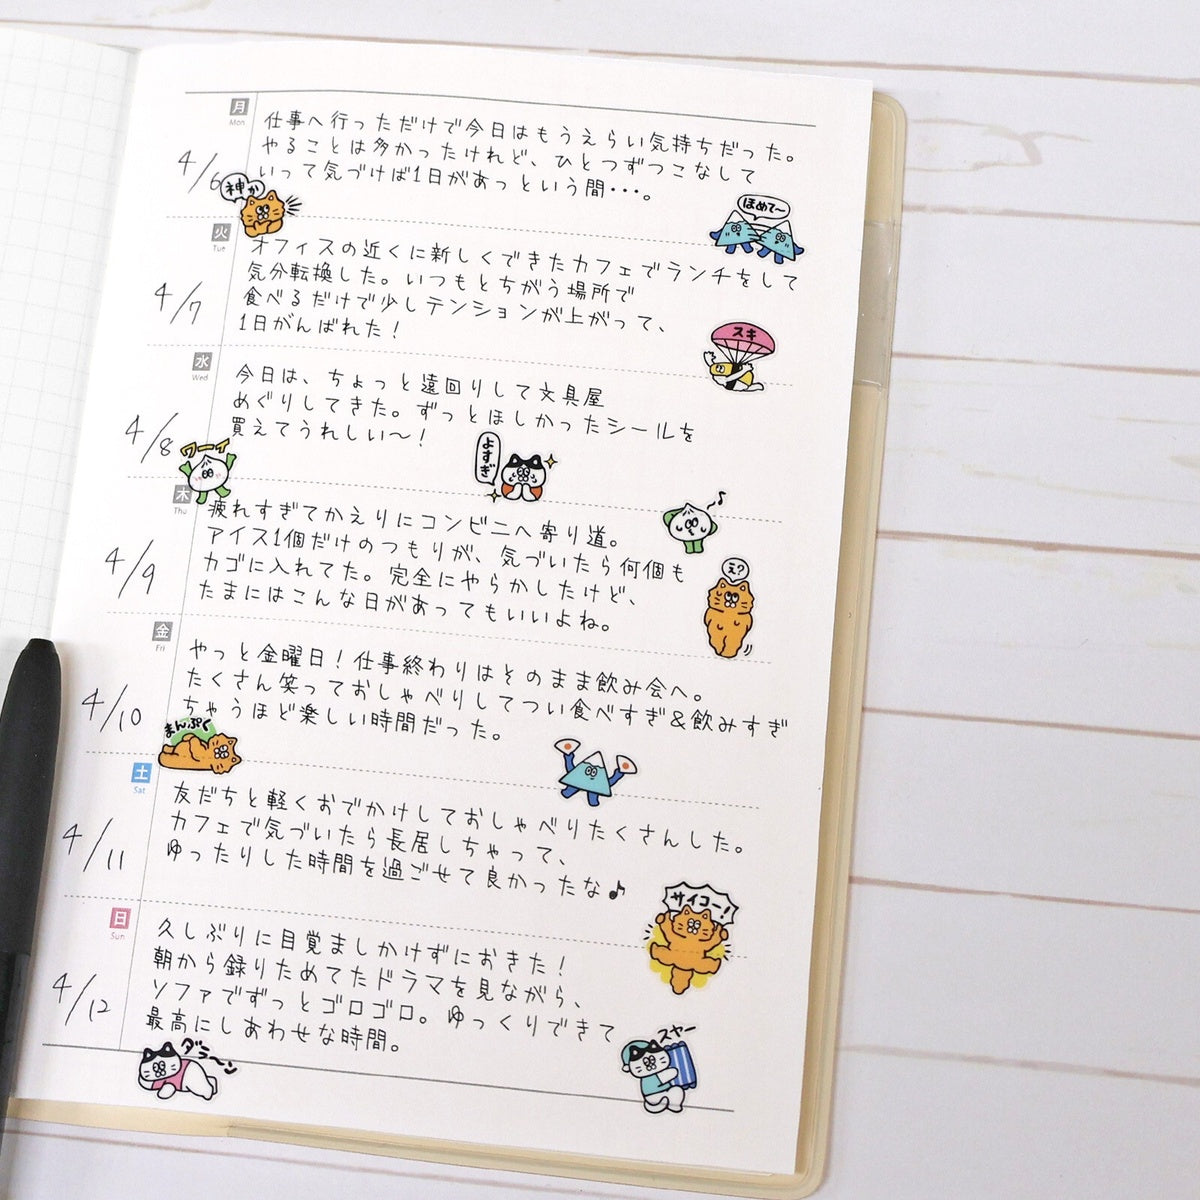 月
Mon
4/6
仕事へ行っただけで今日はもうえらい気持ちだった。
やることは多かったけれど、ひとつずつこなして
いって気づけば1日があっという間・・・。
神か
ほめて〜
火
Tue
4/7
オフィスの近くに新しくできたカフェでランチをして
気分転換した。いつもとちがう場所で
食べるだけで少しテンションが上がって、
1日がんばれた！
スキ
水
Wed
4/8
今日は、ちょっと遠回りして文具屋
めぐりしてきた。ずっとほしかったシールを
買えてうれしい〜！
ワーイ
よすぎ
木
Thu
4/9
疲れすぎてかえりにコンビニへ寄り道。
アイス1個だけのつもりが、気づいたら何個も
カゴに入れてた。完全にやらかしたけど、
たまにはこんな日があってもいいよね。
え?
金
Fri
4/10
やっと金曜日！仕事終わりはそのまま飲み会へ。
たくさん笑っておしゃべりしてつい食べすぎ&飲みすぎ
ちゃうほど楽しい時間だった。
まんぷく
土
Sat
4/11
友だちと軽くおでかけしておしゃべりたくさんした。
カフェで気づいたら長居しちゃって、
ゆったりした時間を過ごせて良かったな♪
サイコー!
日
Sun
4/12
久しぶりに目覚ましかけずにおきた！
朝から録りためてたドラマを見ながら、
ソファでずっとゴロゴロ。ゆっくりできて
最高にしあわせな時間。
ダラ〜ン
スヤー